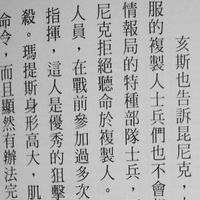 亥斯也告訴昆尼克，
服的複製人士兵們也不會
情報局的特種部隊士兵，
尼克拒絕聽命於複製人。
人員，在戰前參加過多次
指揮，這人是優秀的狙擊
殺。瑪提斯身形高大，肌
命令，而且顯然有辦法完